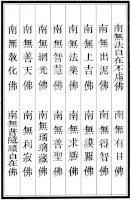 南無法自在不虛佛
南無有日佛
南無出泥佛
南無得智佛
南無上吉佛
南無謨羅佛
南無法樂佛
南無求勝佛
南無智慧佛
南無善聖佛
南無網光佛
南無琉璃藏佛
南無善天佛
南無利寂佛
南無教化佛
南無普隨順自在佛